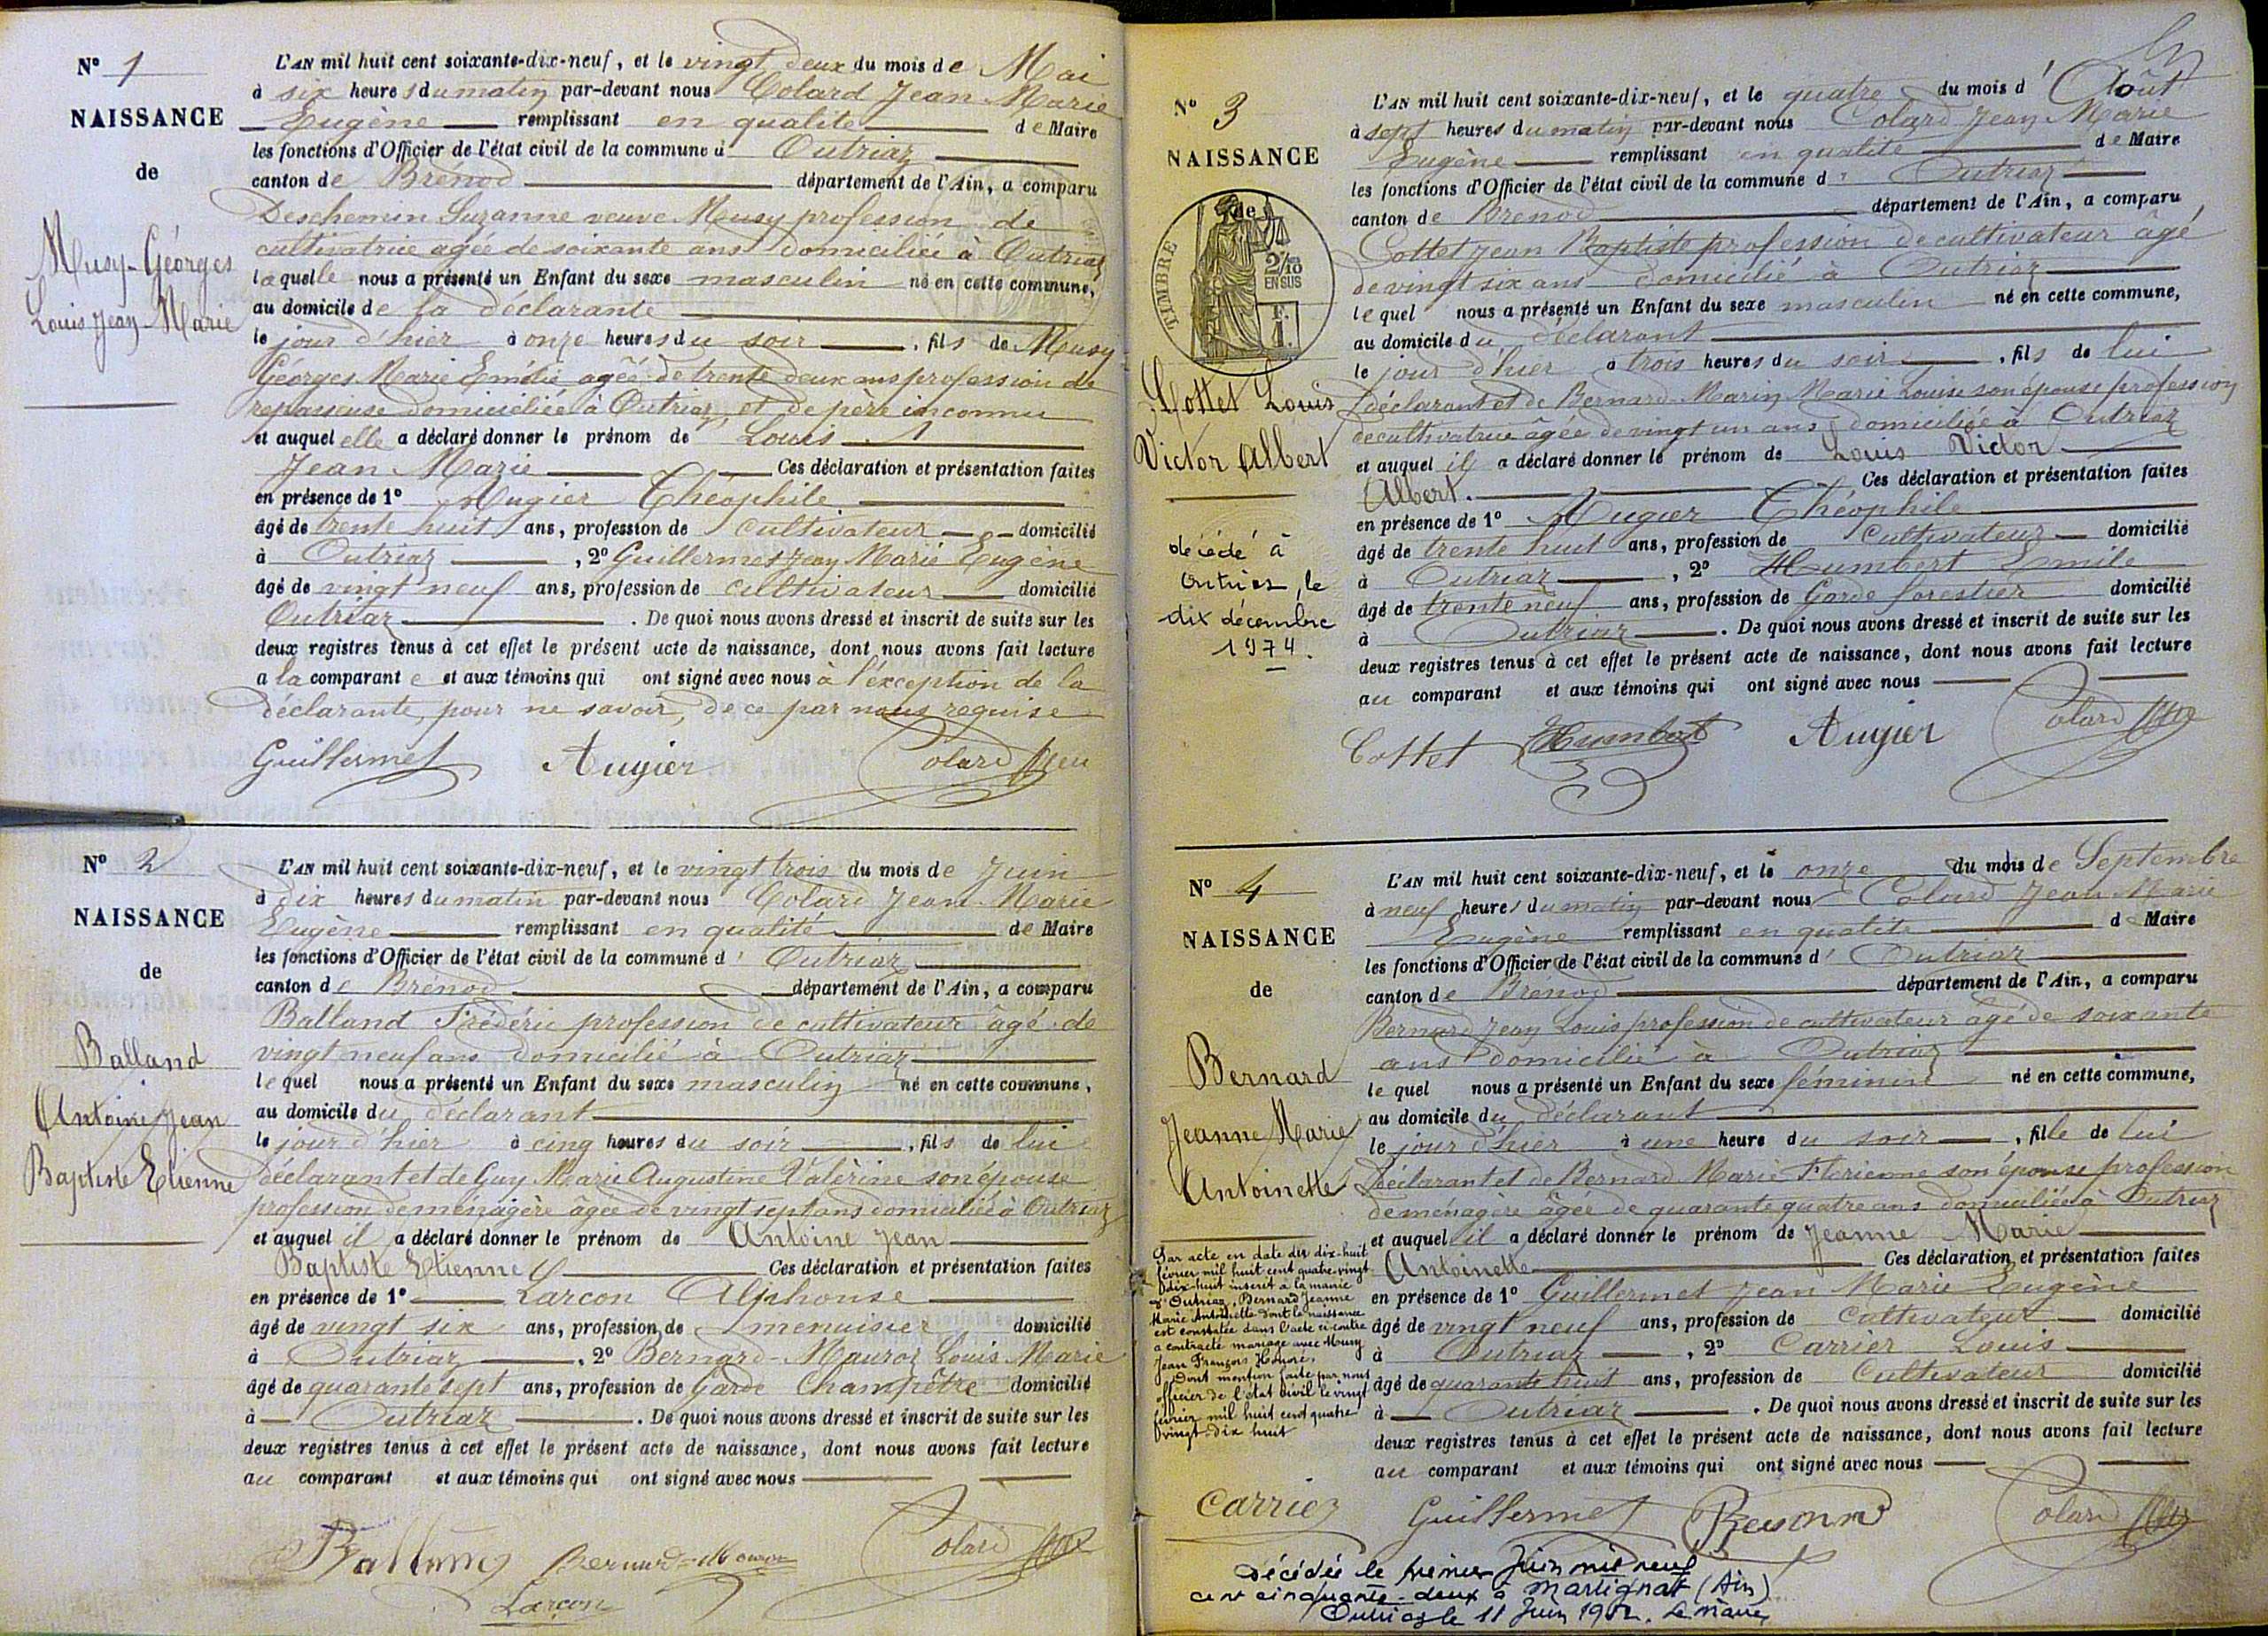 N° 1
NAISSANCE
de
Musy-Géorges
Louis Jean Marie
L'AN mil huit cent soixante-dix-neuf, et le vingt deux du mois de Mai
à six heures du matin par-devant nous Colard Jean Marie
Eugène remplissant en qualité de Maire
les fonctions d'Officier de l'état civil de la commune d Outriaz
canton de Brénod département de l'Ain, a comparu
Deschemin Suzanne veuve Musy profession de
cultivatrice agée de soixante ans domiciliée à Outriaz
laquelle nous a présenté un Enfant du sexe masculin né en cette commune,
au domicile de la déclarante
le jour d'hier à onze heures du soir, fils de Musy
Géorges Marie Emélie agée de trente deux ans profession de
repasseuse domiciliée à Outriaz et de père inconnu
et auquel elle a déclaré donner le prénom de Louis
Jean Marie Ces déclaration et présentation faites
en présence de 1° Augier Théophile
âgé de trente huit ans, profession de cultivateur domicilié
à Outriaz, 2° Guillermet Jean Marie Eugène
âgé de vingt neuf ans, profession de cultivateur domicilié
Outriaz. De quoi nous avons dressé et inscrit de suite sur les
deux registres tenus à cet effet le présent acte de naissance, dont nous avons fait lecture
a la comparant e et aux témoins qui ont signé avec nous à l'éxception de la
déclarante, pour ne savoir, de ce par nous requise
Guillermet Augier Colard
N° 2
NAISSANCE
de
Balland
Antoine Jean
Baptiste Etienne
L'AN mil huit cent soixante-dix-neuf, et le vingt trois du mois de Juin
à dix heures du matin par-devant nous Colard Jean Marie
Eugène remplissant en qualité de Maire
les fonctions d'Officier de l'état civil de la commune d' Outriaz
canton de Brénod département de l'Ain, a comparu
Balland Frédéric profession de cultivateur âgé de
vingt neuf ans domicilié à Outriaz
lequel nous a présenté un Enfant du sexe masculin né en cette commune,
au domicile du déclarant
le jour d'hier à cinq heures du soir, fils de lui
déclarant et de Guy Marie Augustine Valèrine son épouse
profession de ménagère âgée de vingt sept ans domiciliée à Outriaz
et auquel il a déclaré donner le prénom de Antoine Jean
Baptiste Etienne Ces déclaration et présentation faites
en présence de 1° Larçon Alphonse
âgé de vingt six ans, profession de menuisier domicilié
à Outriaz, 2° Bernard-Mauroz Louis Marie
âgé de quarante sept ans, profession de Garde Champêtre domicilié
à Outriaz. De quoi nous avons dressé et inscrit de suite sur les
deux registres tenus à cet effet le présent acte de naissance, dont nous avons fait lecture
au comparant et aux témoins qui ont signé avec nous
Balland Bernard Colard
Larçon
N° 3
NAISSANCE
de
TIMBRE
2/10
EN SUS
Cottet Louis
Victor Albert
décédé à
Outriaz, le
dix décembre
1974.
L'AN mil huit cent soixante-dix-neuf, et le quatre du mois d' Août
à sept heures du matin par-devant nous Colard Jean Marie
Eugène remplissant en qualité de Maire
les fonctions d'Officier de l'état civil de la commune d' Outriaz
canton de Brenod département de l'Ain, a comparu
Cottet Jean Baptiste profession de cultivateur âgé
de vingt six ans domicilié à Outriaz
lequel nous a présenté un Enfant du sexe masculin né en cette commune,
au domicile du déclarant
le jour d'hier à trois heures du soir, fils de lui
déclarant et de Bernard-Marin Marie Louise son épouse profession
de cultivatrice âgée de vingt un ans domiciliée à Outriaz
et auquel il a déclaré donner le prénom de Louis Victor
Albert. Ces déclaration et présentation faites
en présence de 1° Augier Théophile
âgé de trente huit ans, profession de cultivateur domicilié
à Outriaz, 2° Humbert Emile
âgé de trente neuf ans, profession de Garde forestier domicilié
à Outriaz. De quoi nous avons dressé et inscrit de suite sur les
deux registres tenus à cet effet le présent acte de naissance, dont nous avons fait lecture
au comparant et aux témoins qui ont signé avec nous
Cottet Humbert Augier Colard
N° 4
NAISSANCE
de
Bernard
Jeanne Marie
Antoinette
Par acte en date du dix-huit
février mil huit cent quatre-vingt
dix-huit inscrit à la mairie
d'Outriaz, Bernard Jeanne
Marie Antoinette dont la naissance
est constatée dans l'acte ci-contre
a contracté mariage avec Musy
Jean François Honoré.
Dont mention faite par nous
officier de l'état civil le vingt
février mil huit cent quatre
vingt-dix huit
L'AN mil huit cent soixante-dix-neuf, et le onze du mois de Septembre
à neuf heures du matin par-devant nous Colard Jean Marie
Eugène remplissant en qualité d Maire
les fonctions d'Officier de l'état civil de la commune d' Outriaz
canton de Brenod département de l'Ain, a comparu
Bernard Jean Louis profession de cultivateur âgé de soixante
ans domicilié à Outriaz
lequel nous a présenté un Enfant du sexe féminin né en cette commune,
au domicile du déclarant
le jour d'hier à une heure du soir, fille de lui
déclarant et de Bernard Marie son épouse profession
de ménagère âgée de quarante quatre ans domiciliée à Outriaz
et auquel il a déclaré donner le prénom de Jeanne Marie
Antoinette Ces déclaration et présentation faites
en présence de 1° Guillermet Jean Marie Eugène
âgé de vingt neuf ans, profession de Cultivateur domicilié
à Outriaz, 2° Carrier Louis
âgé de quarante huit ans, profession de Cultivateur domicilié
à Outriaz. De quoi nous avons dressé et inscrit de suite sur les
deux registres tenus à cet effet le présent acte de naissance, dont nous avons fait lecture
au comparant et aux témoins qui ont signé avec nous
Carrier Guillermet Bernard Colard
Décédée le premier Juin mil neuf
cent cinquante-deux à Martignat (Ain)
Outriaz le 11 Juin 1952. Le maire,